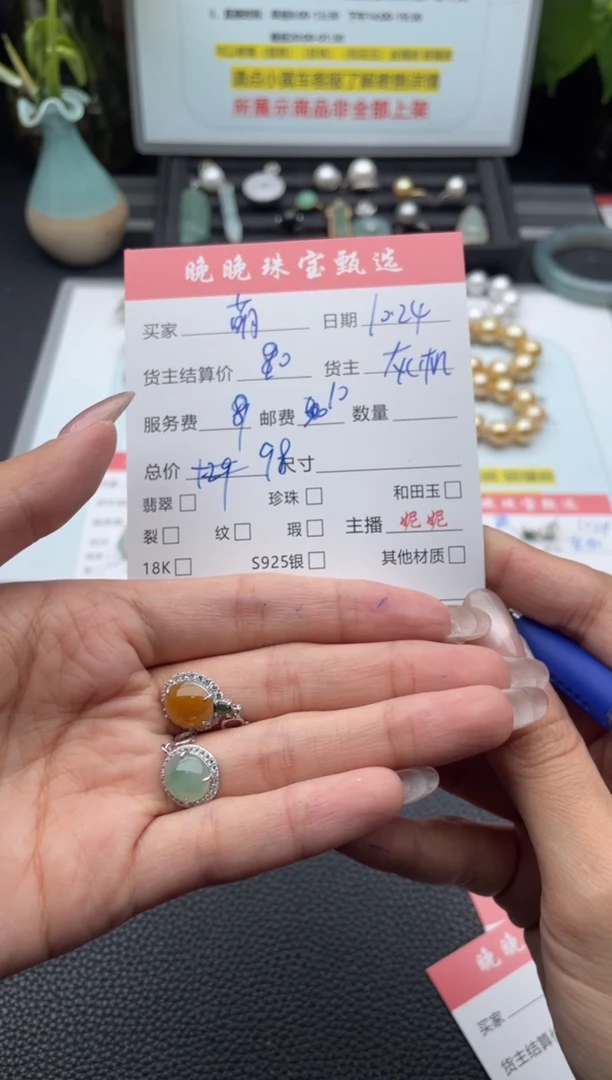 请点小黄车客服了解密售详情
所展示商品非全部上架
晚晚珠宝甄选
买家 萌 日期 10.24
货主结算价 80 货主
服务费 8 邮费 10 数量
总价 129 98 尺寸
翡翠 珍珠 和田玉
裂 纹 瑕 主播 妮妮
18K S925银 其他材质
晚晚
买家
货主结算价